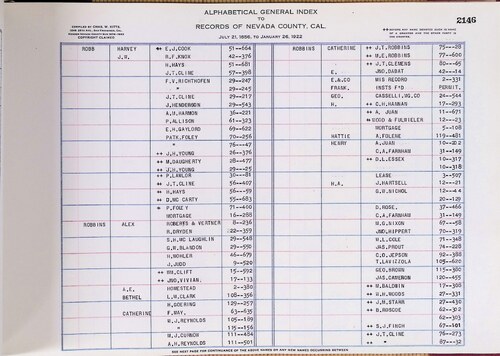 ALPHABETICAL GENERAL INDEX
TO
RECORDS OF NEVADA COUNTY, CAL.
JULY 21, 1856, TO JANUARY 26, 1922
COPYRIGHT CLAIMED
2146
ROBB HARNEY ++ E.J.COOK 51-664 ROBBINS CATHERINE ++ J.T.ROBBINS 75-89
J.R. B.F.KNOX 42-376 ++ M.E.ROBBINS 77-606
H.HAYS 51-681 ++ J.T.CLEMENS 80-65
J.T.CLINE 57-398 E. JNO.DABAT 42-14
F.V.RICHTHOFEN 29-247 E.A.CO MIS RECORD 2-331
" 29-245 FRANK. INSTS F'D PERMIT.
J.T.CLINE 29-217 GEO. CASSELLI,VG.CO 24-544
J.HENDERSON 29-543 H. ++ C.H.HANNAN 17-293
A.M.HARMON 36-221 ++ A. JUAN 11-671
P.ALLISON 61-323 ++ WOOD & FULWIELER 12-23
E.H.GAYLORD 69-622 MORTGAGE 5-108
PATK.FOLEY 70-256 HATTIE A.FOLENE 119-481
" 76-47 HENRY A.JUAN 10-202
++ J.H.YOUNG 26-376 C.A.FARNHAM 31-149
++ M.DAUGHERTY 28-472 ++ D.L.ESSEX 10-317
++ J.H.YOUNG 29-25 10-318
++ P.LAWLOR 30-81 LEASE 3-507
++ J.T.CLINE 56-407 H.A. J.HARTSELL 12-21
++ H.HAYS 56-59 G.B.NICHOL 12-44
++ D.MC CARTY 55-683 20-129
++ P.FOLEY 71-400 D.ROSE. 37-466
MORTGAGE 16-288 C.A.FARNHAM 31-149
ROBBINS ALEX ROBERTS & VERTNER 8-236 W.G.NIXON 67-58
R.DRYDEN 22-357 JNO HIPPERT 70-319
S.H.MC LAUGHLIN 29-548 W.L.COLE 71-348
G.W.BLANDON 29-550 JAS.PROUT 74-228
H.NOHLER 46-679 C.D.JEPSON 92-388
J.JUDD 9-520 T.LAVIZZOLA 105-620
++ WM.CLIFT 15-592 GEO.BROWN 115-380
++ JNO.VIVIAN. 17-133 JAS.CAMERON 120-455
A.E. HOMESTEAD 2-380 ++ M.BALDWIN 17-300
BETHEL L.M.CLARK 108-356 ++ W.H.WOODS 27-331
H.GOERING 129-257 ++ J.M.STARR 27-430
CATHERINE F.MAY, 63-635 ++ B.RUSCOE 62-302
W.J.REYNOLDS 105-189 62-303
" 115-156 ++ S.J.FINCH 67-401
W.J.GUINCH 111-484 ++ J.T.CLINE 76-273
A.H.REYNOLDS 111-501 ++ " 87-32
SEE NEXT PAGE FOR CONTINUATION OF THE ABOVE NAMES OR ANY NEW NAMES OCCURRING BETWEEN